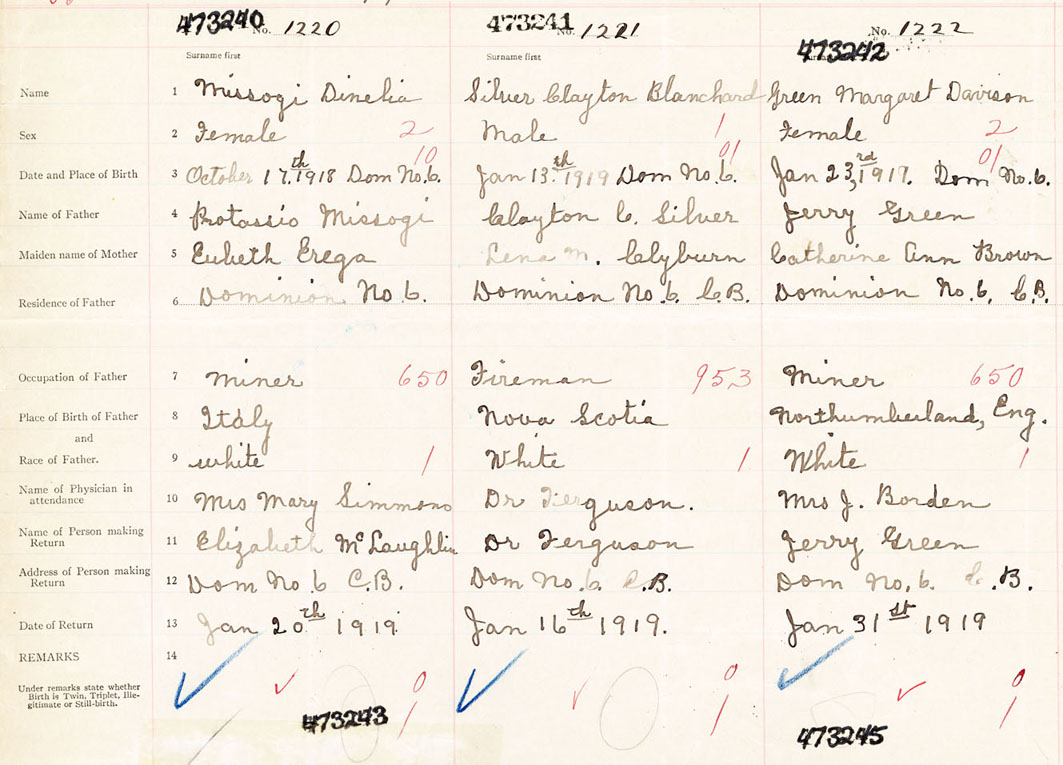 473240 No. 1220 473241 No. 1221 473242 No. 1222
Surname first Surname first
Name 1 Missogi Dinelia Silver Clayton Blanchard Green Margaret Davison
Sex 2 Female 2 Male 1 Female 2
10 01 01
Date and Place of Birth 3 October 17th 1918 Dom No. 6. Jan 13th 1919 Dom No. 6. Jan 23rd, 1917. Dom No. 6.
Name of Father 4 Protassio Missogi Clayton C. Silver Jerry Green
Maiden name of Mother 5 Eubeth Erega Lena M. Clyburn Catherine Ann Brown
Residence of Father 6 Dominion No. 6. Dominion No. 6. C.B. Dominion No. 6. C.B.
Occupation of Father 7 Miner 650 Fireman 953 Miner 650
Place of Birth of Father 8 Italy Nova Scotia Northumberland, Eng.
and
Race of Father. 9 white 1 White 1 White 1
Name of Physician in
attendance 10 Mrs Mary Simmons Dr Ferguson. Mrs J. Borden
Name of Person making
Return 11 Elizabeth McLaughlin Dr Ferguson Jerry Green
Address of Person making
Return 12 Dom No. 6 C.B. Dom No. 6. C.B. Dom No. 6. C.B.
Date of Return 13 Jan 20th 1919 Jan 16th 1919. Jan 31st 1919
REMARKS 14
Under remarks state whether
Birth is Twin, Triplet, Ille-
gitimate or Still-birth.
0 0 0
1 1 1
473243 473245